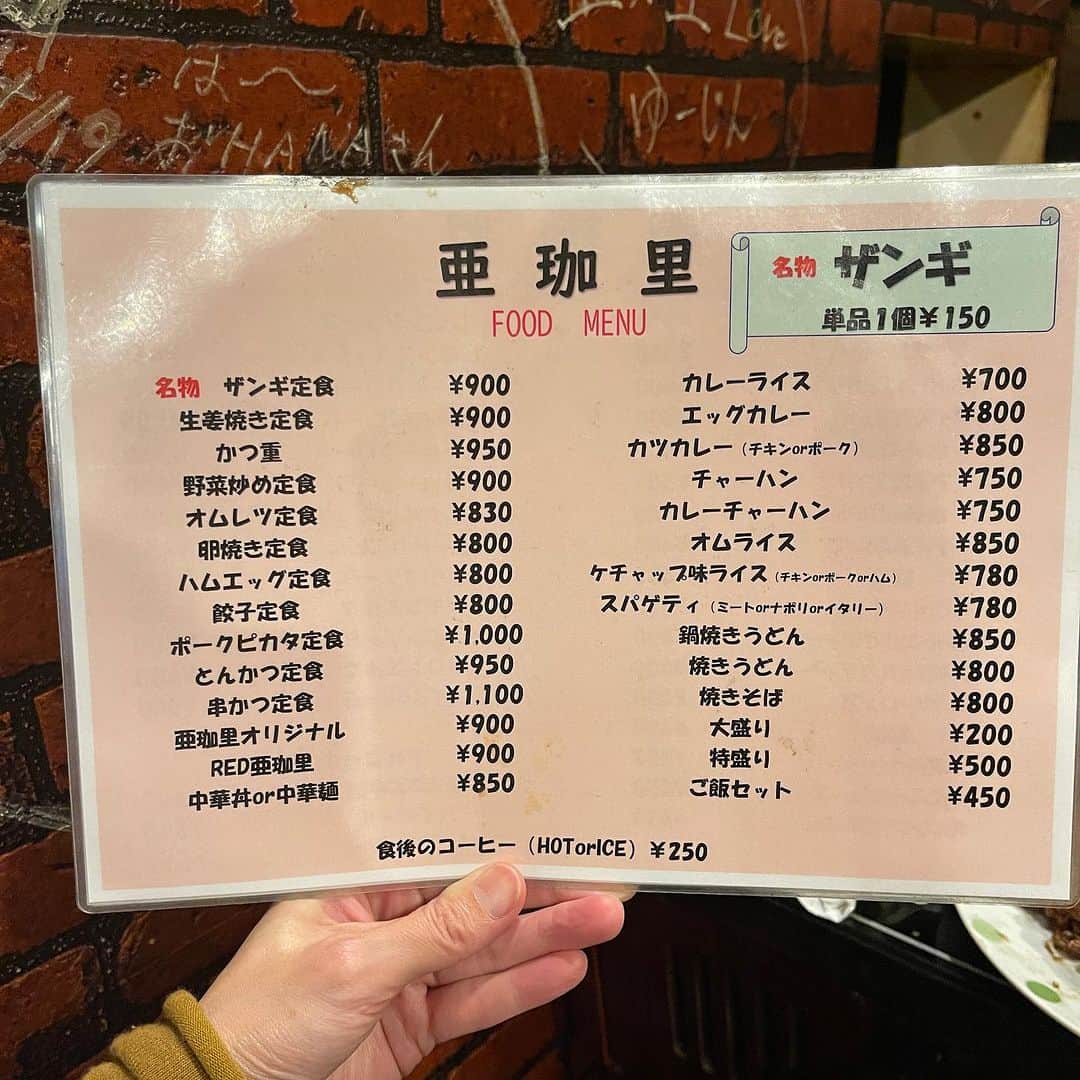 は〜
おHANAさん
ゆーじん
Love
亜珈里
FOOD MENU
名物 ザンギ
単品1個¥150
名物 ザンギ定食 ¥900
生姜焼き定食 ¥900
かつ重 ¥950
野菜炒め定食 ¥900
オムレツ定食 ¥830
卵焼き定食 ¥800
ハムエッグ定食 ¥800
餃子定食 ¥800
ポークピカタ定食 ¥1,000
とんかつ定食 ¥950
串かつ定食 ¥1,100
亜珈里オリジナル ¥900
RED亜珈里 ¥900
中華丼or中華麺 ¥850
カレーライス ¥700
エッグカレー ¥800
カツカレー（チキンorポーク） ¥850
チャーハン ¥750
カレーチャーハン ¥750
オムライス ¥850
ケチャップ味ライス（チキンorポークorハム） ¥780
スパゲティ（ミートorナポリorイタリー） ¥780
鍋焼きうどん ¥850
焼きうどん ¥800
焼きそば ¥800
大盛り ¥200
特盛り ¥500
ご飯セット ¥450
食後のコーヒー（HOTorICE）¥250